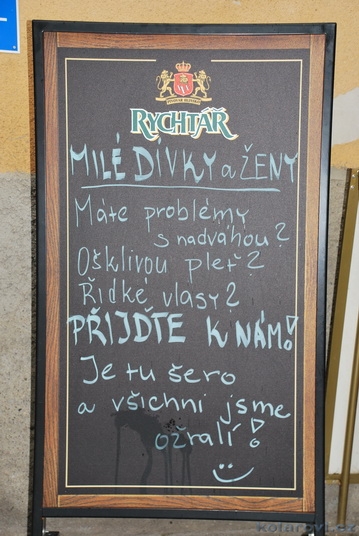 RYCHTÁŘ
MILÉ DÍVKY a ŽENY
Máte problémy
s nadváhou?
Ošklivou pleť?
Řídké vlasy?
PŘIJĎTE K NÁM!
Je tu šero
a všichni jsme
ožralí!